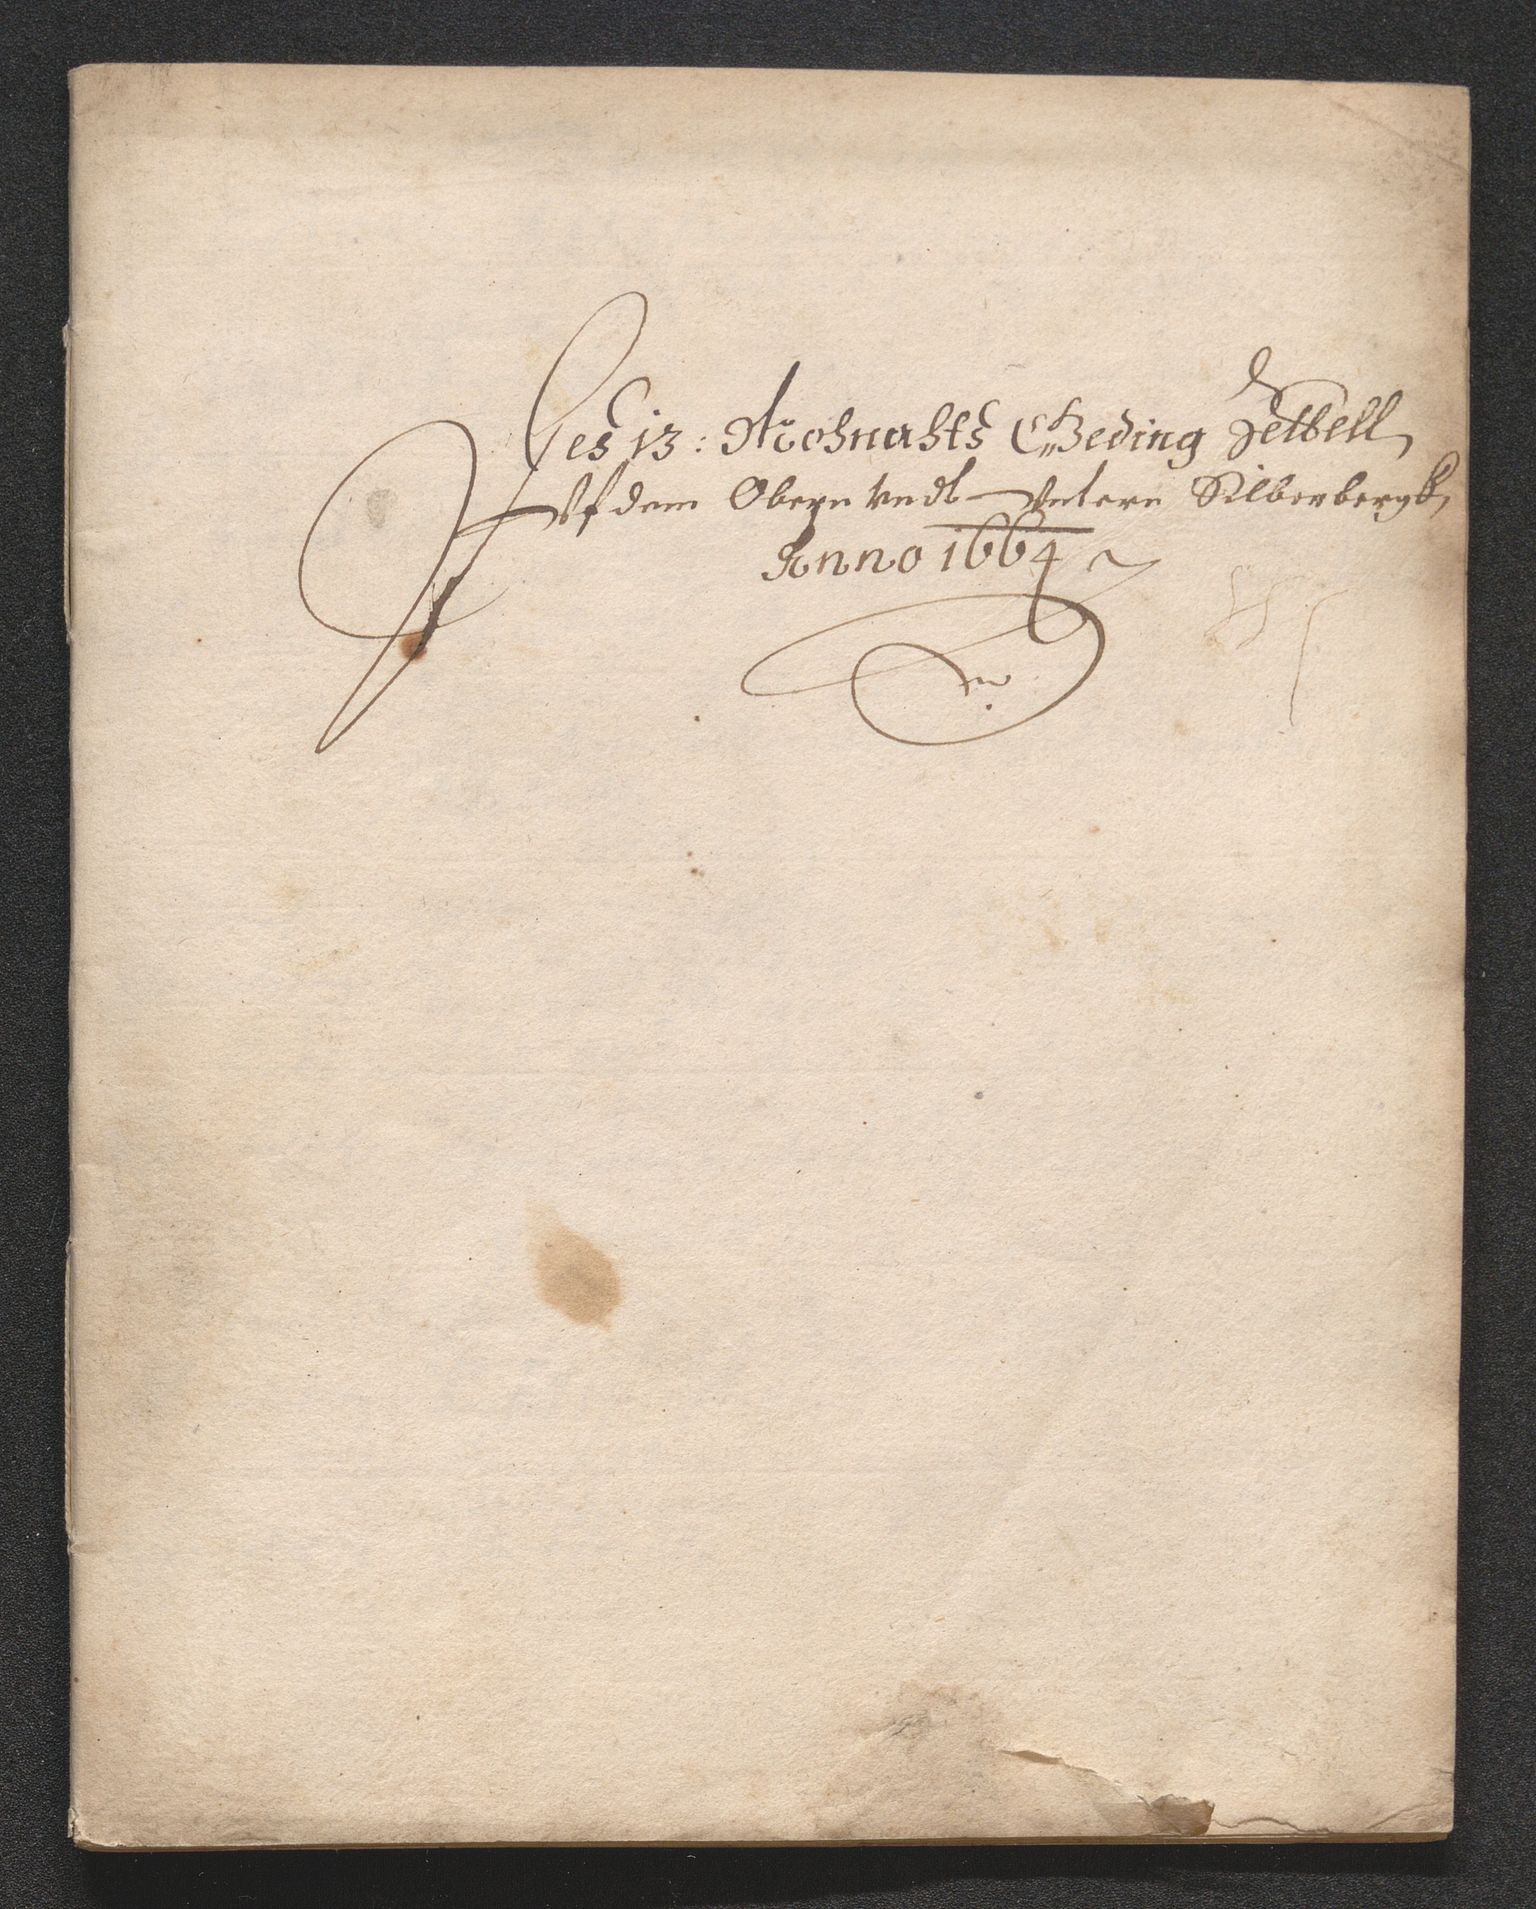 Des 13: Mohnahts Geding Zettell
Vf dem Obern vndt Vntern Silberbergk,
Anno 1664